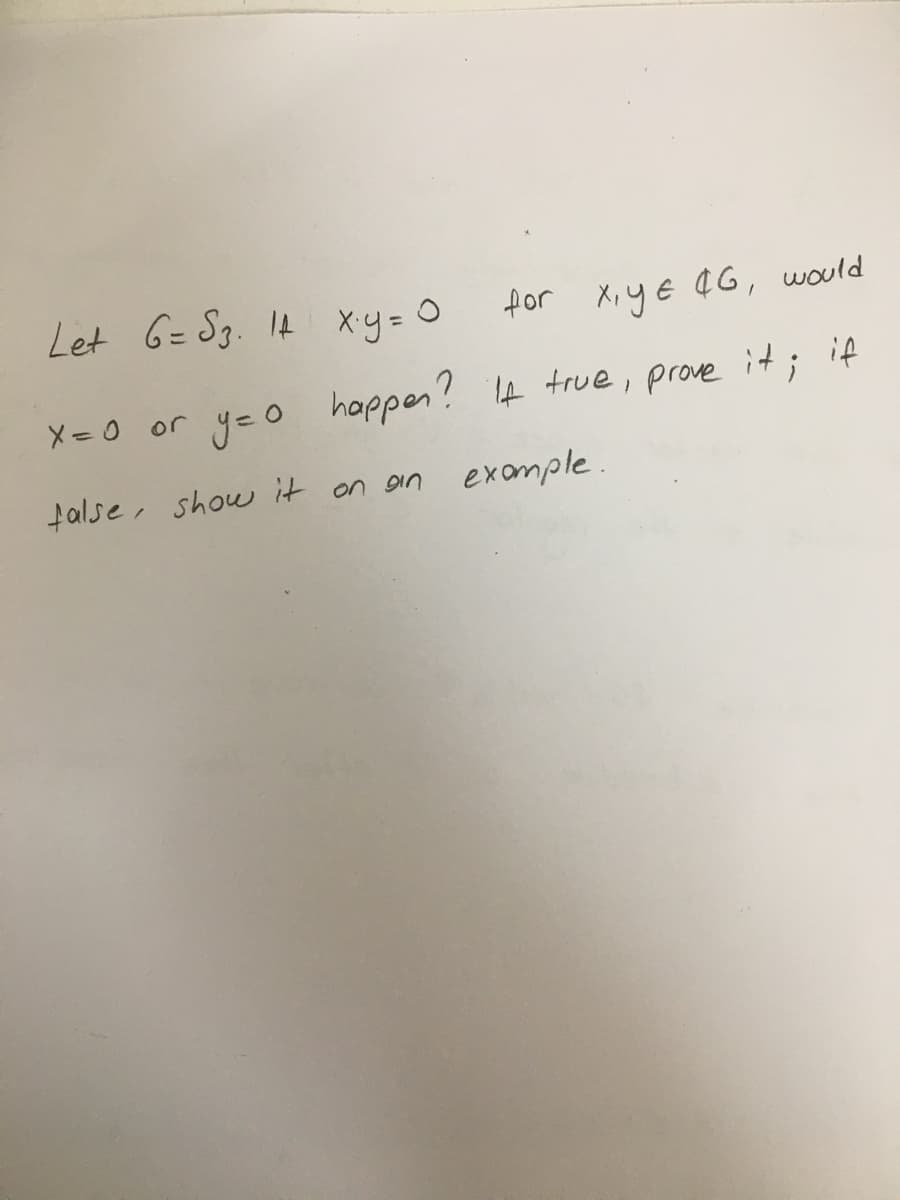 Let G=S₃. If x·y=0 for x,y∈ ₵G, would
x=0 or y=0 happen? If true, prove it; if
false, show it on an example.